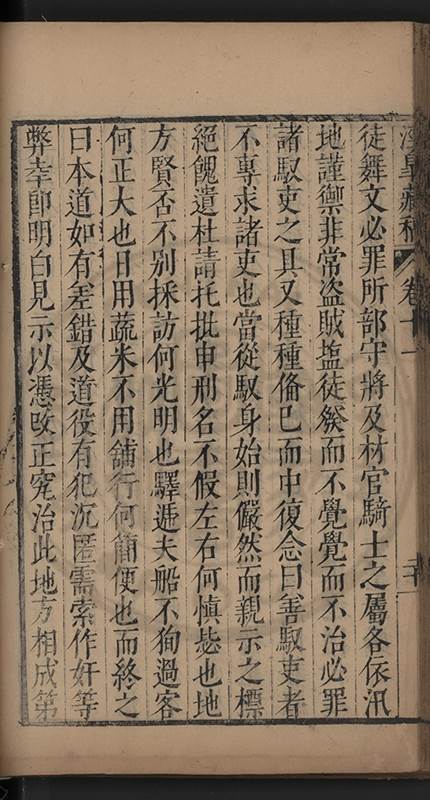 涇臯藏稿 卷十一
徒舞文必罪所部守將及材官騎士之屬各依汛
地謹禦非常盜賊塩徒發而不覺覺而不治必罪
諸馭吏之具又種種俻已而中復念曰善馭吏者
不專求諸吏也當從馭身始則儼然而親示之標
絕餽遺杜請托批申刑名不假左右何慎恷也地
方賢否不别採訪何光明也驛遞夫船不狥過客
何正大也日用蔬米不用舖行何簡便也而終之
曰本道如有差錯及道役有犯沉匿需索作奸等
弊幸卽明白見示以憑改正究治此地方相成第